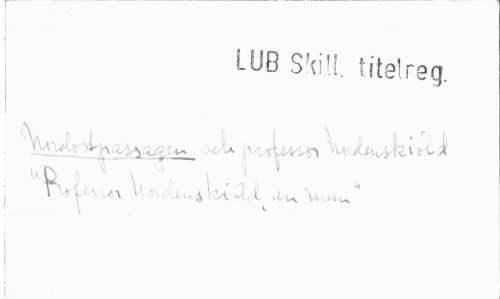 LUB Skill. titelreg.
Nordostpassagen och professor Nordenskiöld
"Professor Nordenskiöld, en man"